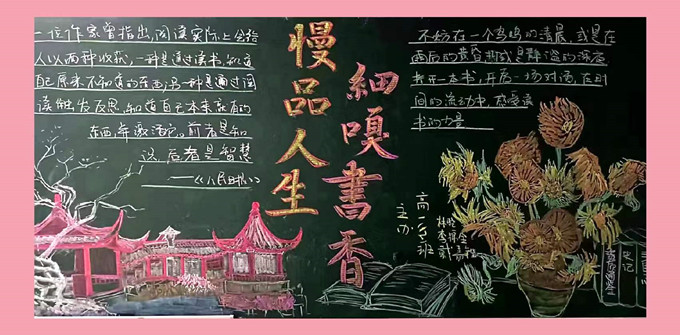 一位作家曾指出，阅读实际上会给
人以两种收获，一种是通过读书，知道
自己原来不知道的东西；另一种是通过阅
读触发反思，知道自己本来就有的
东西，
前者是知
识，后者是智慧
——《人民日报》
慢品人生
細嗅書香
不妨在一个鸟鸣的清晨，或是在
雨后的黄昏，抑或是静谧的深夜
打开一本书，开启一场对话，在时
间的流动中，感受阅
书的力量
主办
高一
班
史记